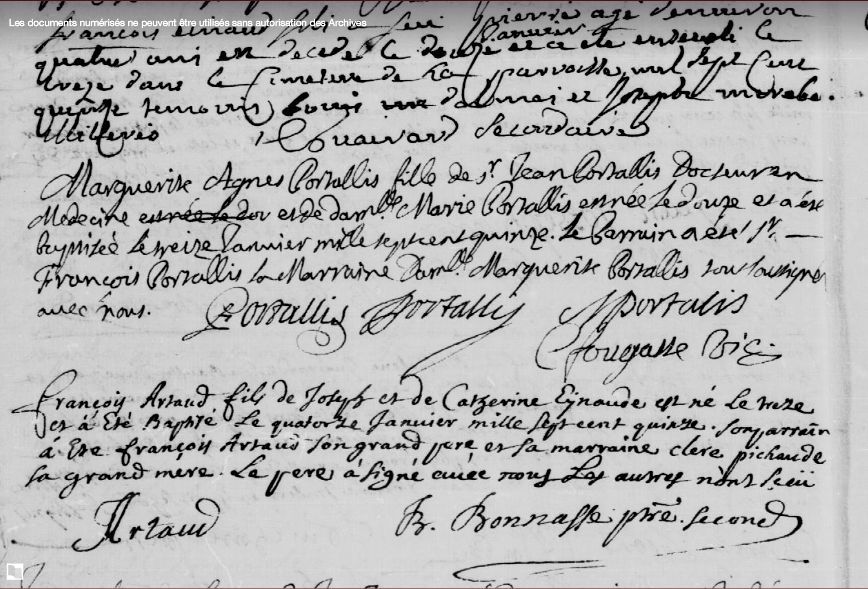 Les documents numérisés ne peuvent être utilisés sans autorisation des Archives
françois einaud fils feu pierre agé denuiron
quatre ans est decede le douze Janvier et a ete enseveli le
treze dans le Cimetiere de la parroisse mil sept cent
quinze temoins louis et Joseph
Secondaire
Marguerite Agnes Portallis fille de Sr. Jean Portallis Docteur en
Medecine et de damlle Marie Portallis est née le douze et a été
baptisée le treize Janvier mille sept cent quinze. le parrain a été Sr.
François Portallis la Marraine Damlle Marguerite Portallis tous soussignés
avec nous. Portallis Portallis M Portalis
Fougasse Vic.
François Artaud fils de Joseph et de Catherine Eynaude est né le treze
et à Eté Baptisé Le quatorze Janvier mille sept cent quinze. son parrain
à Ete françois Artaud son grand pere et sa marraine clere pichaude
sa grand mere. Le pere à signé avec nous Les autres n'ont sceu
Artaud B. Bonnasse ptre. second